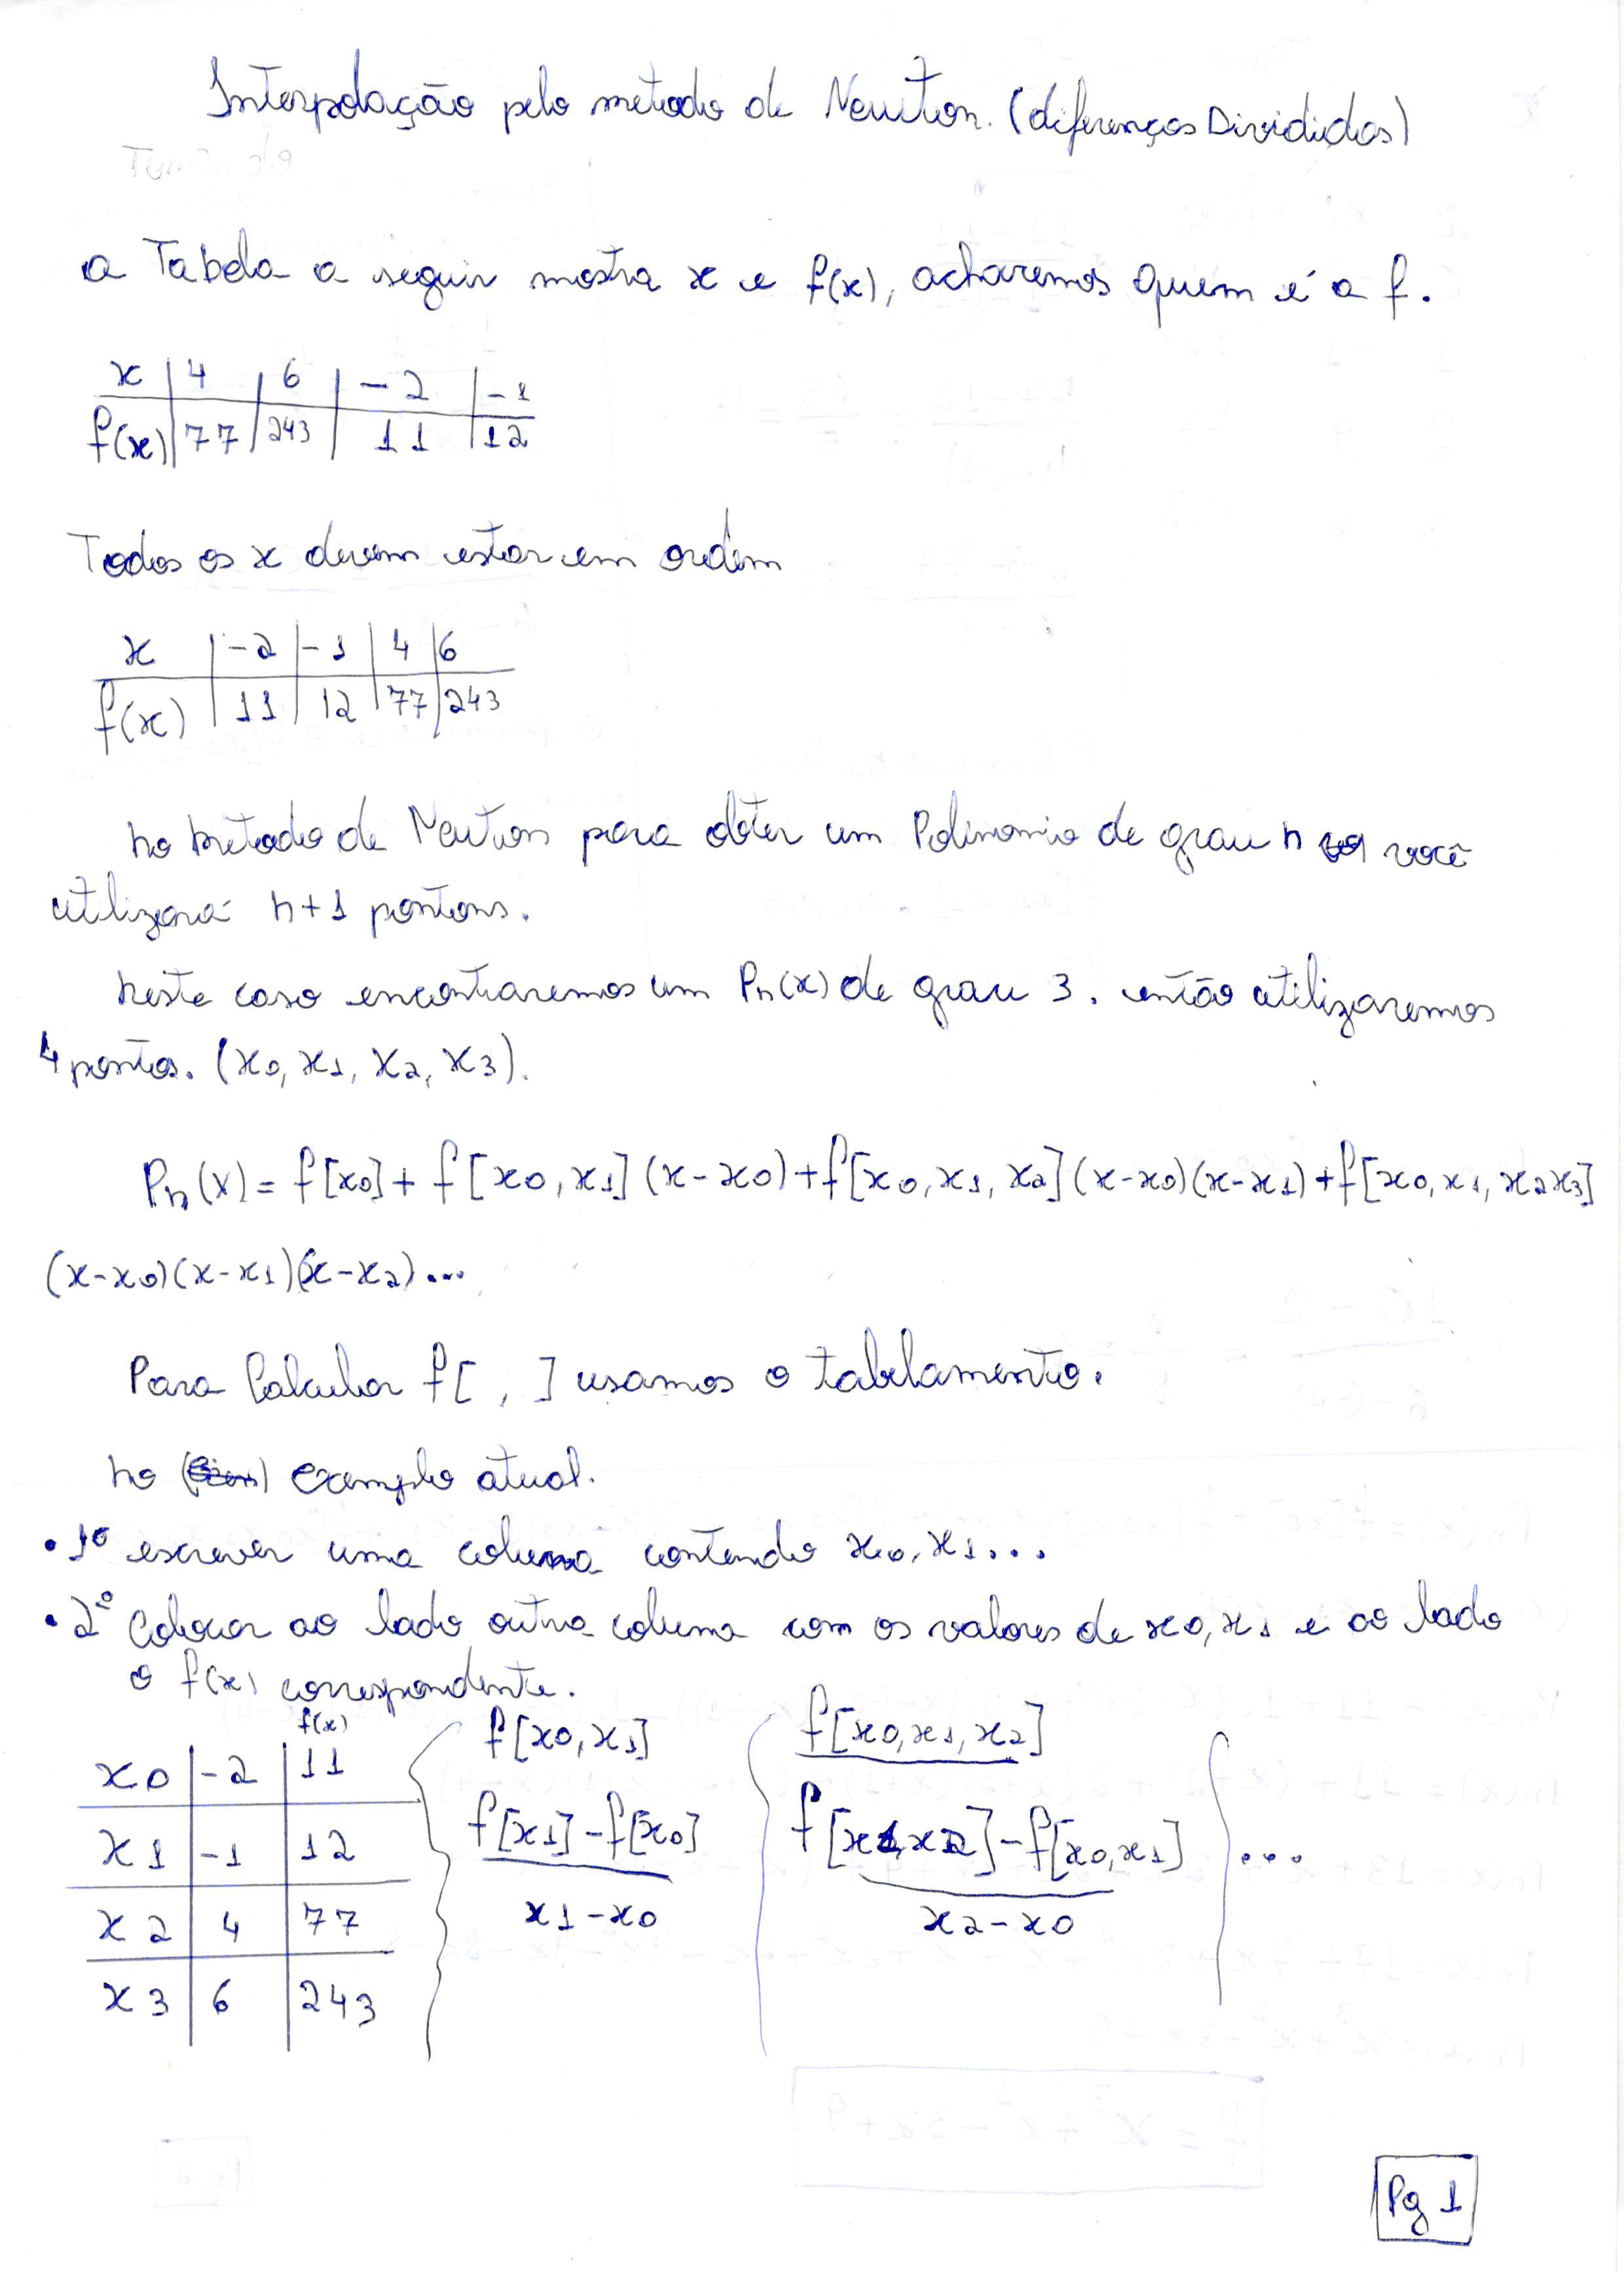 Interpolação pelo metodo de Newton. (diferenças Divididas)
a Tabela a seguir mostra x e f(x), acharemos quem é a f.
x | 4 | 6 | -2 | -1
f(x) | 77 | 243 | 11 | 12
Todos os x devem estar em ordem
x | -2 | -1 | 4 | 6
f(x) | 11 | 12 | 77 | 243
no metodo de Newton para obter um Polinomio de grau n você
utilizará n+1 pontons.
neste caso encontraremos um Pn(x) de grau 3. então utilizaremos
4 pontos. (x0, x1, x2, x3).
Pn(x) = f[x0] + f[x0,x1](x-x0) + f[x0,x1,x2](x-x0)(x-x1) + f[x0,x1,x2x3]
(x-x0)(x-x1)(x-x2)...
Para Calcular f[ , ] usamos o tabelamento.
no exemplo atual.
• 1º escrever uma coluna contendo x0, x1...
• 2º Colocar ao lado outra coluna com os valores de x0, x1 e ao lado
o f(x) correspondente.
f(x) f[x0,x1] f[x0,x1,x2]
x0 | -2 | 11
x1 | -1 | 12 f[x1]-f[x0] f[x1,x2]-f[x0,x1] ...
x2 | 4 | 77 x1-x0 x2-x0
x3 | 6 | 243
Pg 1